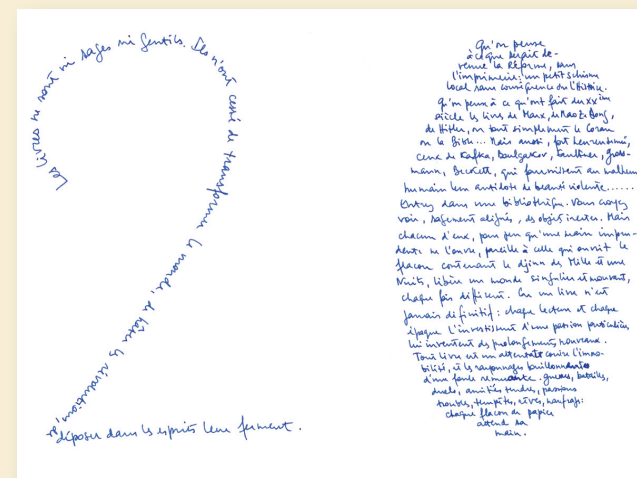 Les livres ne sont ni sages ni gentils. Ils n'ont cessé de transformer le monde, de hâter les révolutions, de
déposer dans les esprits leur ferment.
Qu'on pense
à ce que serait de-
venue la Réforme, sans
l'imprimerie : un petit schisme
local sans conséquence sur l'Histoire.
Qu'on pense à ce qu'ont fait du XXème
siècle les livres de Marx, de Mao Zedong,
de Hitler, ou tout simplement le Coran
ou la Bible... Mais aussi, fort heureusement,
ceux de Kafka, Boulgakov, Faulkner, Gross-
mann, Beckett, qui fournissent au malheur
humain leur antidote de beauté violente......
Entrez dans une bibliothèque. Vous croyez
voir, sagement alignés, des objets inertes. Mais
chacun d'eux, pour peu qu'une main impru-
dente ne l'ouvre, pareille à celle qui ouvrit le
flacon contenant le djinn des Mille et une
Nuits, libère un monde singulier et mouvant,
chaque fois différent. Car un livre n'est
jamais définitif : chaque lecteur et chaque
époque l'investissent d'une passion particulière,
lui inventent des prolongements nouveaux.
Tout livre est un attentat contre l'immo-
bilité, et les rayonnages bouillonnants
d'une foule remuante. guerres, batailles,
duels, amitiés tendres, passions
troubles, tempêtes, rêves, naufrages :
chaque flacon de papier
attend sa
main.